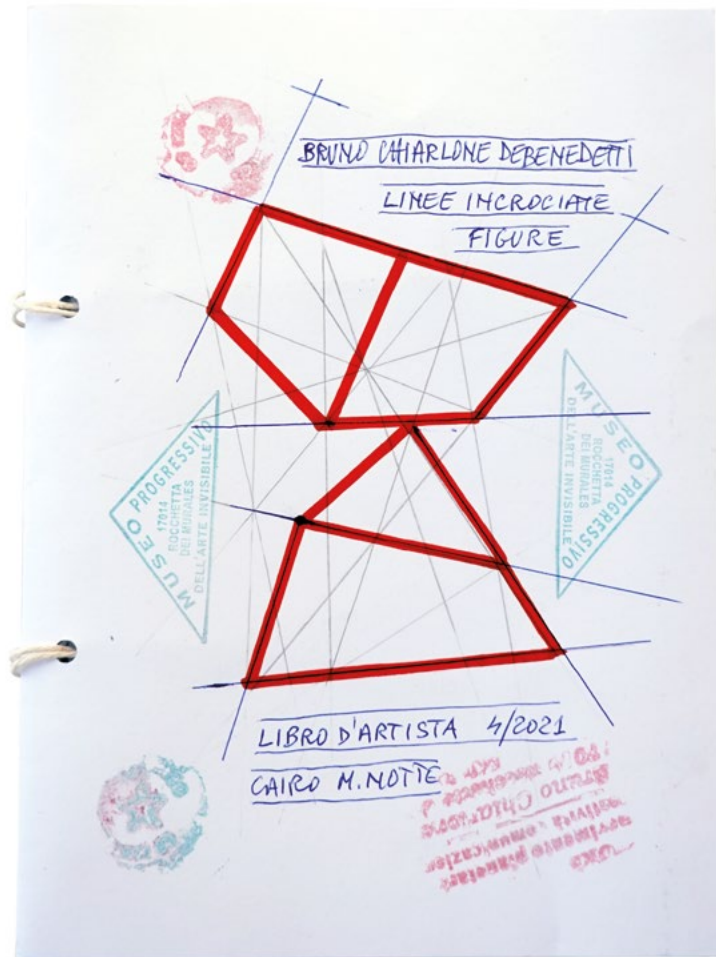 BRUNO CHIARLONE DEBENEDETTI
LINEE INCROCIATE
FIGURE
MUSEO PROGRESSIVO
17014
ROCCHETTA
DEI MURALES
DELL'ARTE INVISIBILE
MUSEO PROGRESSIVO
17014
ROCCHETTA
DEI MURALES
DELL'ARTE INVISIBILE
LIBRO D'ARTISTA 4/2021
CAIRO M.NOTTE
Bruno Chiarlone